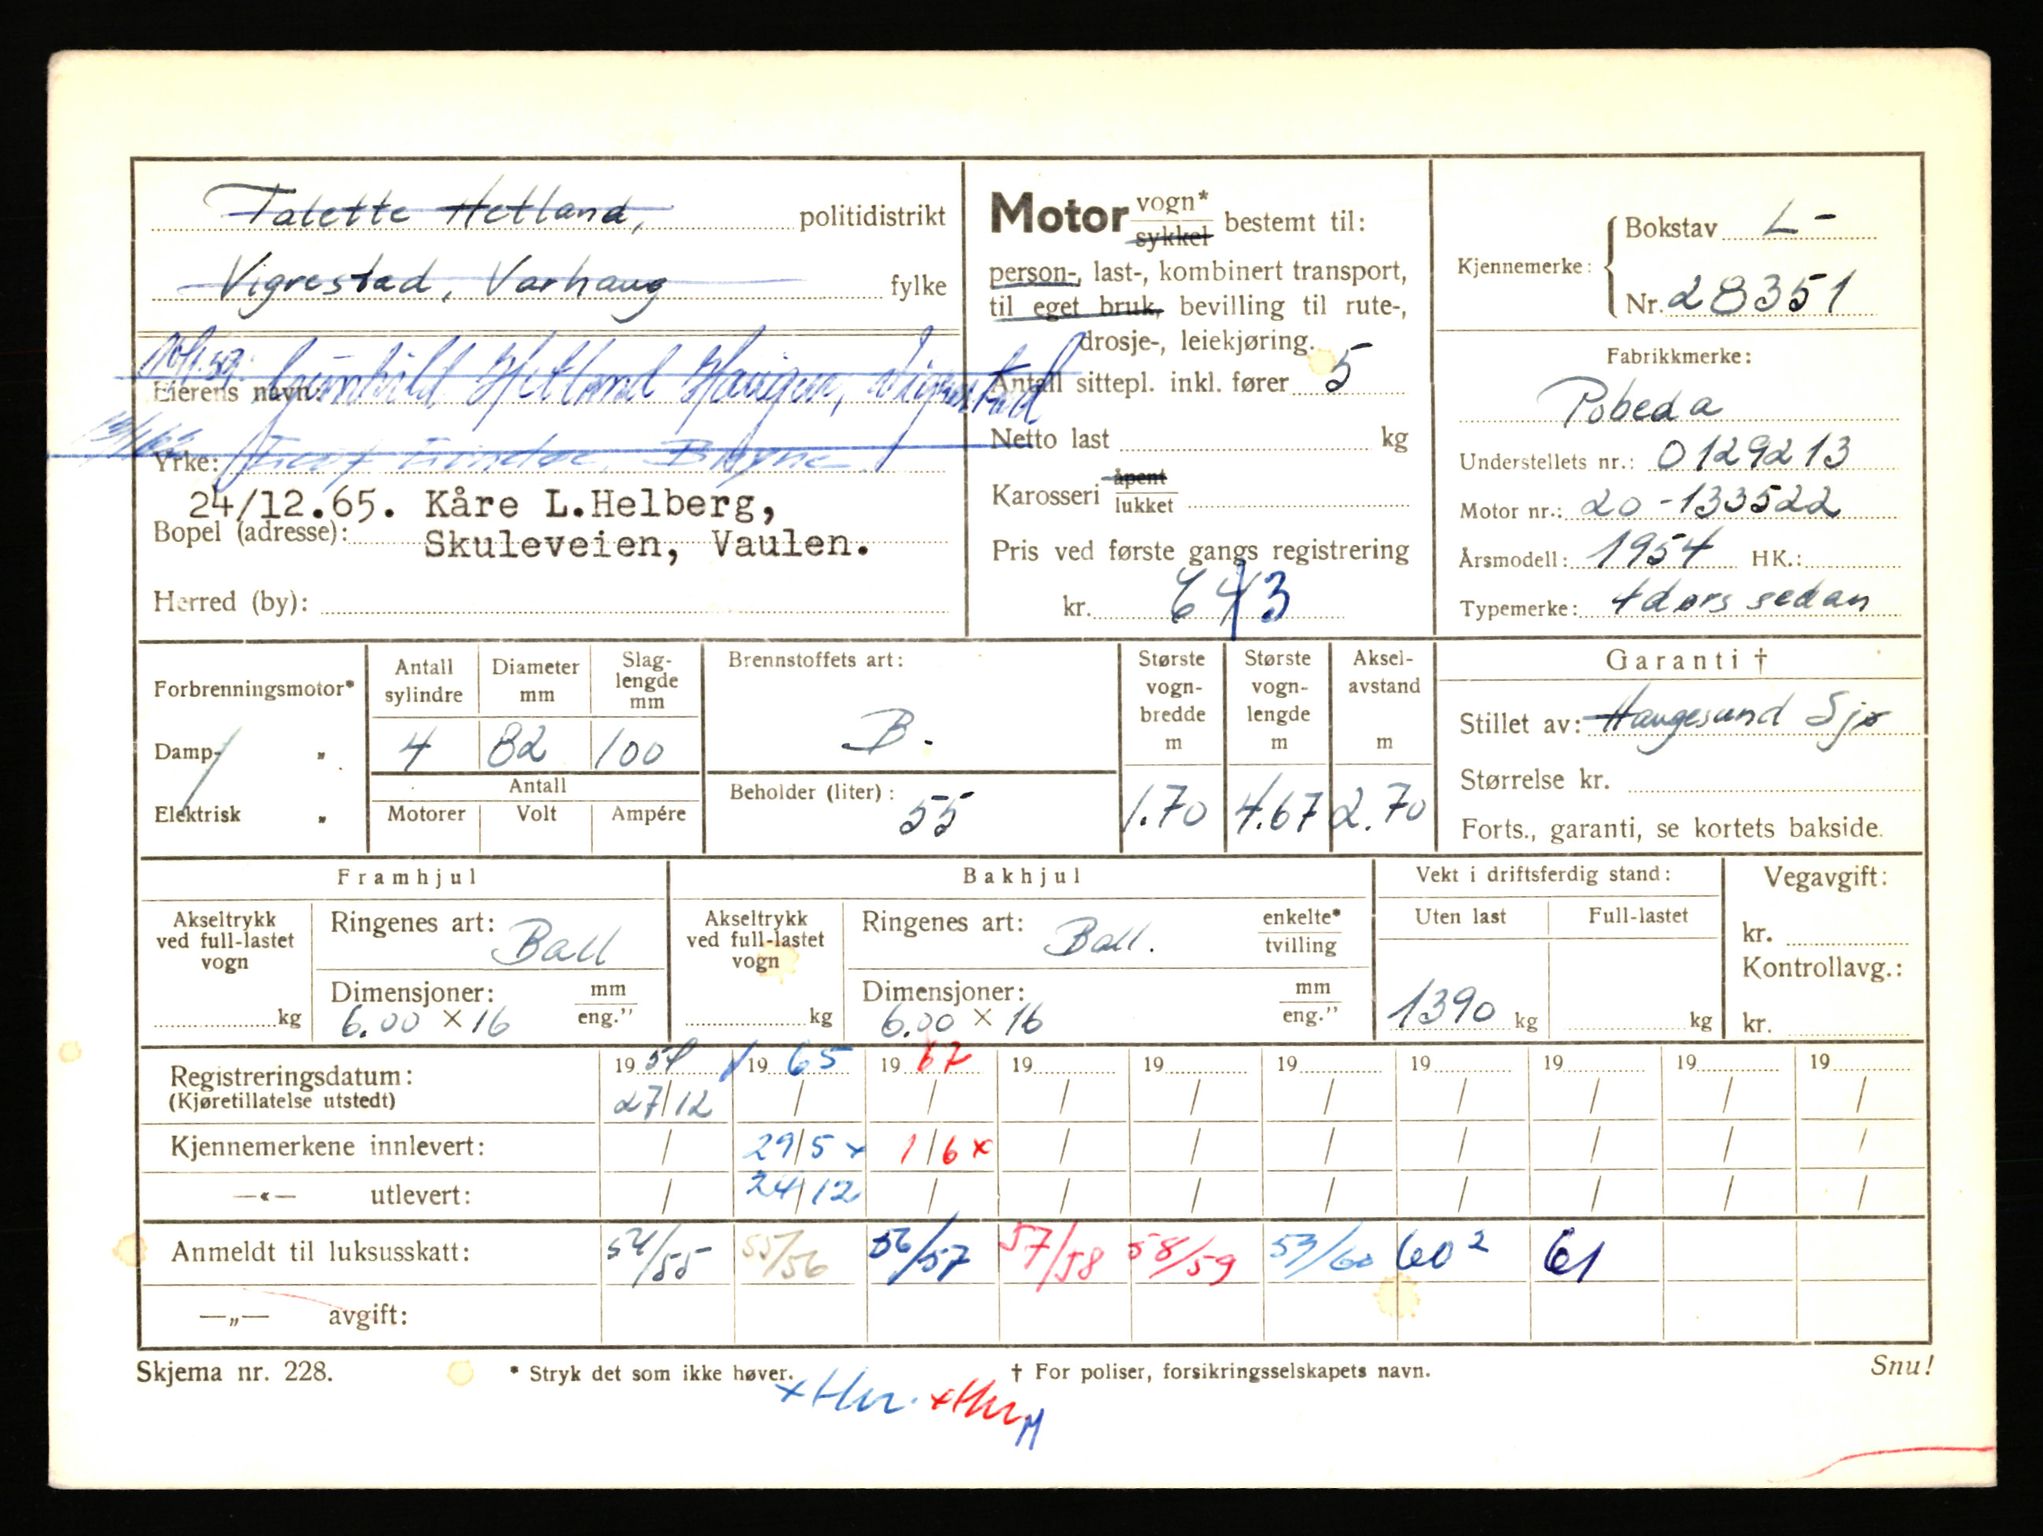 Talette Hetland, politidistrikt
Vigrestad, Varhaug fylke
Gunhild Hetland Haugen, Vigrestad
Eierens navn:
Yrke: Bryne
24/12.65. Kåre L.Helberg,
Bopel (adresse): Skuleveien, Vaulen.
Herred (by):
Motor vogn* sykkel bestemt til:
person-, last-, kombinert transport,
til eget bruk, bevilling til rute-,
drosje-, leiekjøring.
Antall sittepl. inkl. fører 5
Netto last kg
Karosseri åpent lukket
Pris ved første gangs registrering
kr. 643
Kjennemerke: Bokstav L-
Nr. 28351
Fabrikkmerke:
Pobeda
Understellets nr.: 0129213
Motor nr.: 20-133522
Årsmodell: 1954 HK.:
Typemerke: 4dørs sedan
Forbrenningsmotor*
Damp- "
Elektrisk "
Antall sylindre 4
Diameter mm 82
Slag-lengde mm 100
Antall
Motorer Volt Ampére
Brennstoffets art:
B.
Beholder (liter): 55
Største vogn-bredde m 1.70
Største vogn-lengde m 4.67
Aksel-avstand m 2.70
Garanti †
Stillet av: Haugesund Sjø
Størrelse kr.
Forts., garanti, se kortets bakside.
Framhjul
Akseltrykk ved full-lastet vogn kg
Ringenes art: Ball
Dimensjoner: mm eng."
6.00 × 16
Bakhjul
Akseltrykk ved full-lastet vogn kg
Ringenes art: Ball. enkelte* tvilling
Dimensjoner: mm eng."
6.00 × 16
Vekt i driftsferdig stand:
Uten last Full-lastet
1390 kg kg
Vegavgift:
kr.
Kontrollavg.:
kr.
Registreringsdatum: 1954 1965 1967 19 19 19 19 19 19 19
(Kjøretillatelse utstedt) 27/12 / / / / / / / / /
Kjennemerkene innlevert: / 29/5 x 1/6 x / / / / / / /
—«— utlevert: / 24/12 / / / / / / / /
Anmeldt til luksusskatt: 54/55 55/56 56/57 57/58 58/59 59/60 60² 61
—„— avgift:
Skjema nr. 228. * Stryk det som ikke høver. † For poliser, forsikringsselskapets navn. Snu!